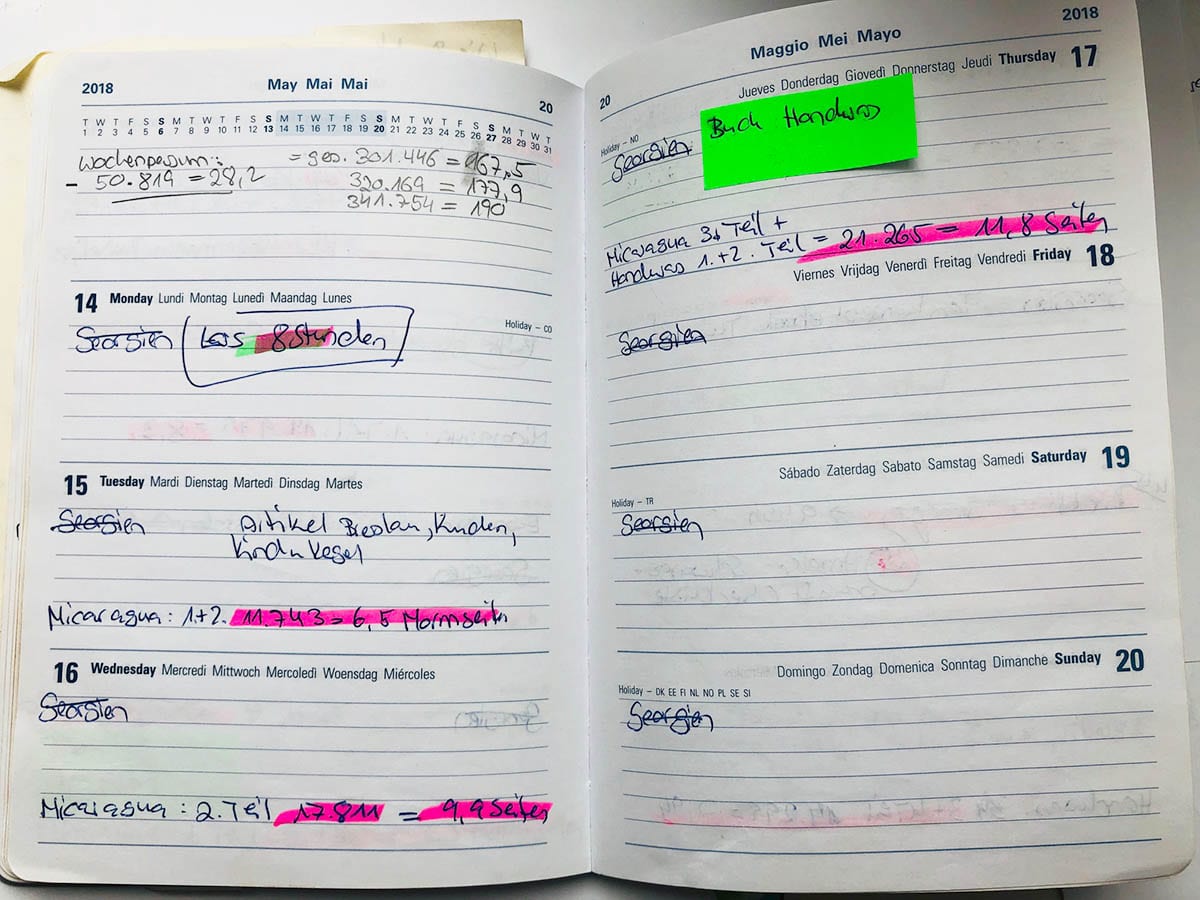 2018 May Mai Mai 20
T W T F S S M T W T F S S M T W T F S S M T W T F S S M T W T
1 2 3 4 5 6 7 8 9 10 11 12 13 14 15 16 17 18 19 20 21 22 23 24 25 26 27 28 29 30 31
Wochenpensum: = ges. 301.446 = 167,5
- 50.819 = 28,2 320.169 = 177,9
341.754 = 190
14 Monday Lundi Montag Lunedì Maandag Lunes
Holiday – CO
Georgien Los 8 Stunden
15 Tuesday Mardi Dienstag Martedì Dinsdag Martes
Georgien Artikel Breslau, Kunden,
Nicaragua: 1+2. 11.743 = 6,5 Normseiten
16 Wednesday Mercredi Mittwoch Mercoledì Woensdag Miércoles
Georgien
Nicaragua: 2. Teil 17.811 = 9,9 Seiten
2018
Maggio Mei Mayo
20 Jueves Donderdag Giovedì Donnerstag Jeudi Thursday 17
Holiday – NO
Georgien
Buch Honduras
Nicaragua 3. Teil +
Honduras 1.+2. Teil = 21.265 = 11,8 Seiten
Viernes Vrijdag Venerdì Freitag Vendredi Friday 18
Georgien
Sábado Zaterdag Sabato Samstag Samedi Saturday 19
Holiday – TR
Georgien
Domingo Zondag Domenica Sonntag Dimanche Sunday 20
Holiday – DK EE FI NL NO PL SE SI
Georgien